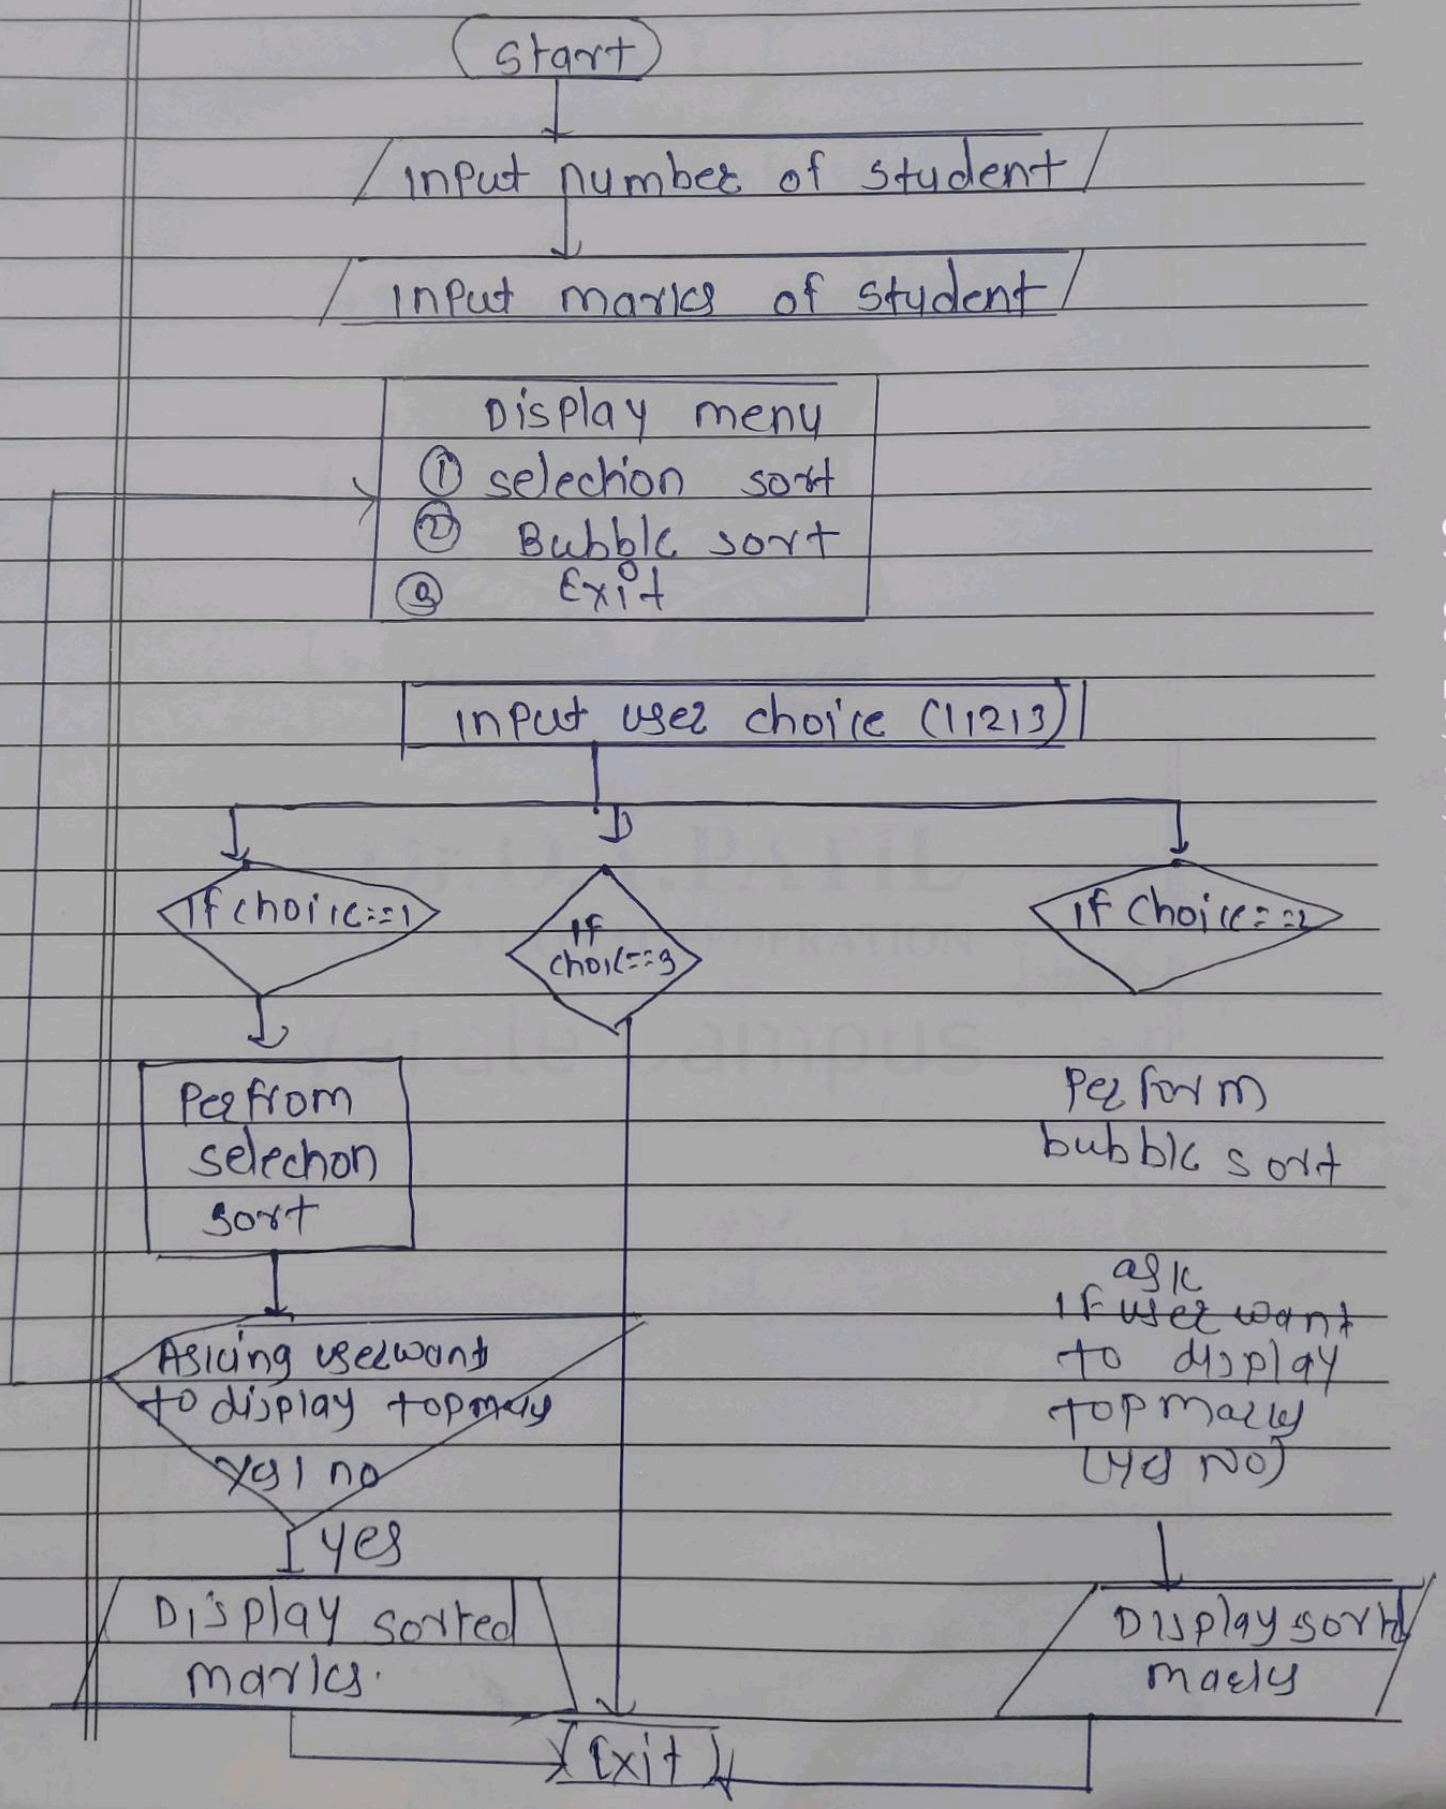 Start
Input number of student
Input marks of student
Display menu
① selection sort
② Bubble sort
③ Exit
input user choice (1,2,3)
If choice==1
If
choic==3
if Choice==2
Perfrom
selection
sort
Perform
bubble sort
Asking user want
to display top marks
Yes / no
ask
if user want
to display
top marks
(yes NO)
yes
Display sorted
marks.
Display sorted
marks
Exit
PATIL
Varale Campus